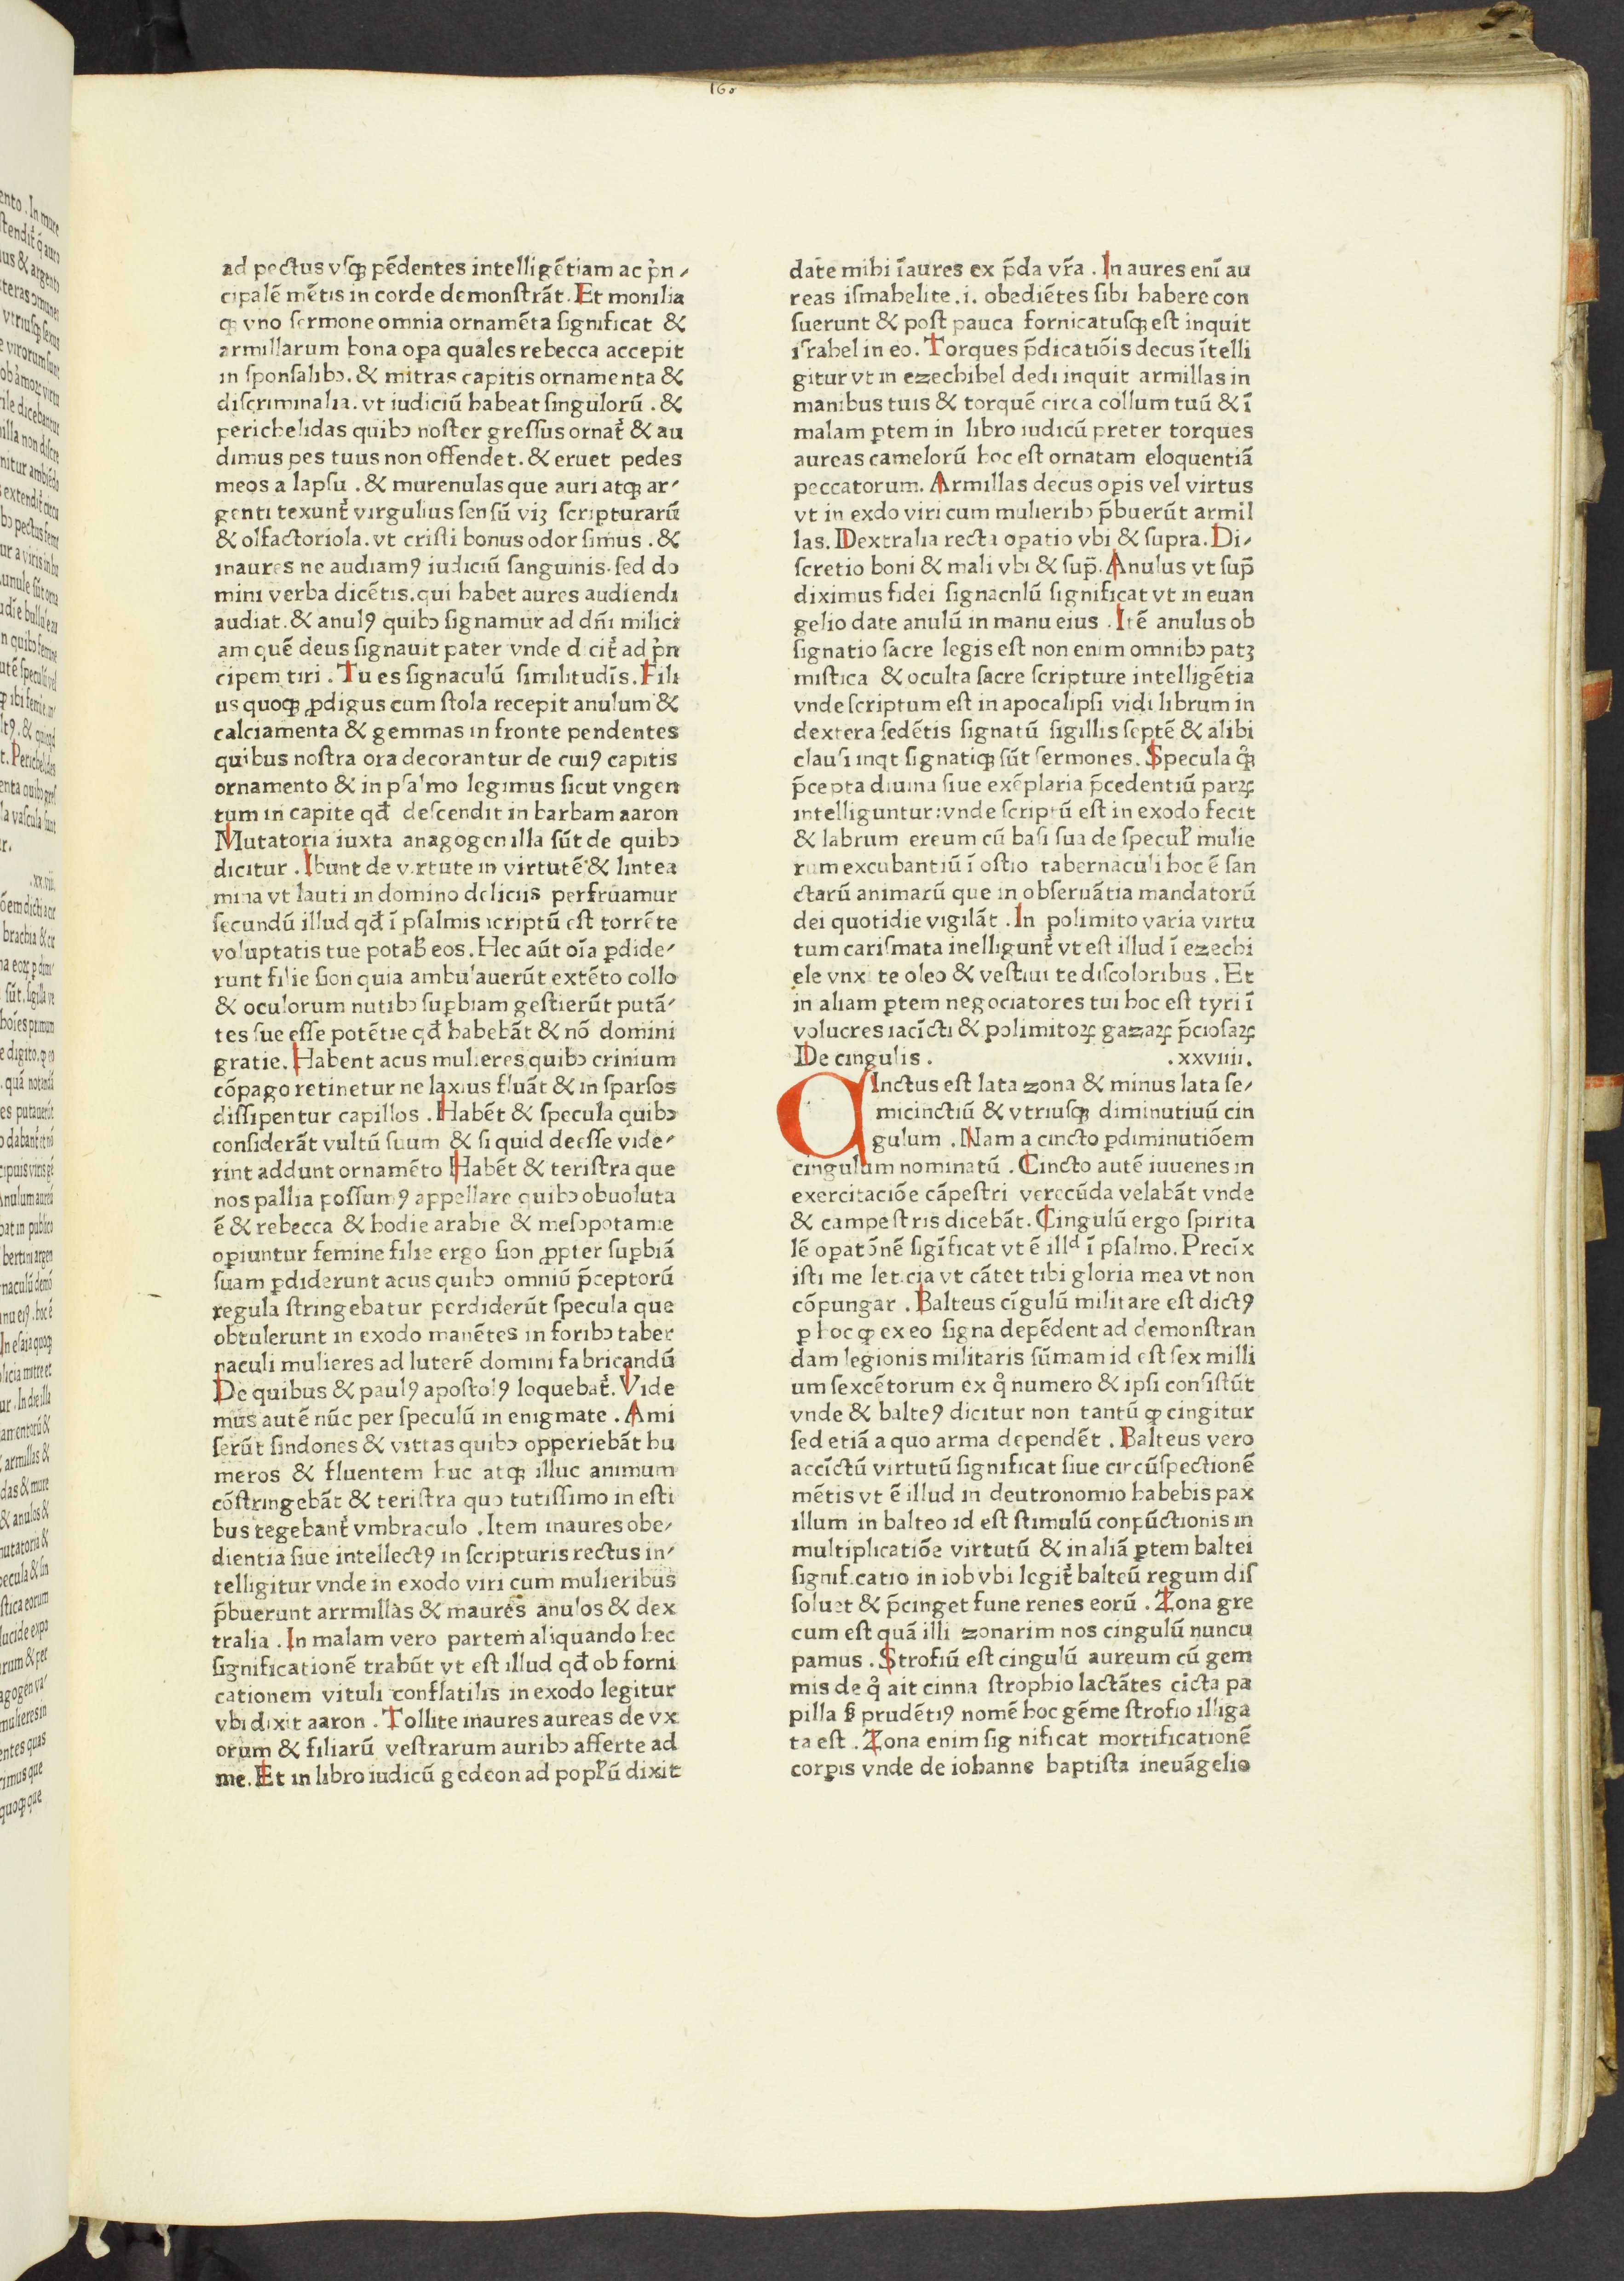 160
ad pectus vſqꝫ pēdentes intelligētiam ac p̍n⸗
cipalē mētis in corde demonſtrāt. Et monilia
ꝙ vno ſermone omnia ornamēta ſignificat &
armillarum bona oꝑa quales rebecca accepit
in ſponſalibꝰ. & mitras capitis ornamenta &
diſcriminalia. vt iudiciū habeat ſingulorū . &
perichelidas quibꝰ noſter greſſus ornat᷑ & au
dimus pes tuus non offendet. & eruet pedes
meos a lapſu . & murenulas que auri atqꝫ ar⸗
genti texunt᷑ virgulius ſenſū viꝫ ſcripturarū
& olfactoriola. vt criſti bonus odor ſimus . &
inaures ne audiamꝰ iudiciū ſanguinis. ſed do
mini verba dicētis. qui habet aures audiendi
audiat. & anulꝰ quibꝰ ſignamur ad dn̄i milici
am quē deus ſignauit pater vnde d cit᷑ ad p̍n
cipem tiri . Tu es ſignaculū ſimilitudīs. Fili
us quoqꝫ ꝓdigus cum ſtola recepit anulum &
calciamenta & gemmas in fronte pendentes
quibus noſtra ora decorantur de cuiꝰ capitis
ornamento & in pſalmo legimus ſicut vngen
tum in capite qđ deſcendit in barbam aaron
Mutatoria iuxta anagogen illa ſūt de quibꝰ
dicitur . Ibunt de v.rtute in virtutē & lintea
mina vt lauti in domino deliciis perfruamur
ſecundū illud qđ ī pſalmis ſcriptū eſt torrēte
voluptatis tue potab̄ eos. Hec aūt oīa ꝑdide⸗
runt filie ſion quia ambulauerūt extēto collo
& oculorum nutibꝰ ſuꝑbiam geſtierūt putā⸗
tes ſue eſſe potētie qđ habebāt & nō domini
gratie. Habent acus mulieres quibꝰ crinium
cōpago retinetur ne laxius fluāt & in ſparſos
diſſipentur capillos . Habēt & ſpecula quibꝰ
conſiderāt vultū ſuum & ſi quid deeſſe vide⸗
rint addunt ornamēto Habēt & teriſtra que
nos pallia poſſumꝰ appellare quibꝰ obuoluta
ē & rebecca & hodie arabie & meſopotamie
oꝑiuntur femine filie ergo ſion ꝓpter ſuꝑbiā
ſuam ꝑdiderunt acus quibꝰ omniū p̄ceptorū
regula ſtringebatur perdiderūt ſpecula que
obtulerunt in exodo manētes in foribꝰ taber
naculi mulieres ad luterē domini fabricandū
De quibus & paulꝰ apoſtolꝰ loquebat᷑. Vide
mus autē nūc per ſpeculū in enigmate . Ami
ſerūt ſindones & vittas quibꝰ opperiebāt hu
meros & fluentem huc atqꝫ illuc animum
cōſtringebāt & teriſtra quo tutiſſimo in eſti
bus tegebant᷑ vmbraculo . Item inaures obe⸗
dientia ſiue intellectꝰ in ſcripturis rectus in⸗
telligitur vnde in exodo viri cum mulieribus
p̄buerunt arrmillas & maures anulos & dex
tralia . In malam vero partem aliquando hec
ſignificationē trahūt vt eſt illud qđ ob forni
cationem vituli conflatilis in exodo legitur
vbi dixit aaron . Tollite inaures aureas de vx
orum & filiarū veſtrarum auribꝰ afferte ad
me. Et in libro iudicū gedeon ad popl̄ū dixit
date mihi īaures ex p̄da vr̄a . In aures enī au
reas iſmahelite .i. obediētes ſibi habere con
ſuerunt & poſt pauca fornicatuſqꝫ eſt inquit
iſrahel in eo. Torques p̄dicatiōis decus ītelli
gitur vt in ezechihel dedi inquit armillas in
manibus tuis & torquē circa collum tuū & ī
malam ꝑtem in libro iudicū preter torques
aureas camelorū hoc eſt ornatam eloquentiā
peccatorum. Armillas decus oꝑis vel virtus
vt in exdo viri cum mulieribꝰ p̄buerūt armil
las. Dextralia recta opatio vbi & ſupra. Di⸗
ſcretio boni & mali vbi & ſup̄. Anulus vt ſup̄
diximus fidei ſignacnlū ſignificat vt in euan
gelio date anulū in manu eius . Itē anulus ob
ſignatio ſacre legis eſt non enim omnibꝰ patꝫ
miſtica & oculta ſacre ſcripture intelligētia
vnde ſcriptum eſt in apocalipſi vidi librum in
dextera ſedētis ſignatū ſigillis ſeptē & alibi
clauſi inqt ſignatiqꝫ ſūt ſermones. Specula qͦqꝫ
p̄cepta diuina ſiue exēplaria p̄cedentiū patꝝ
intelliguntur: vnde ſcriptū eſt in exodo fecit
& labrum ereum cū baſi ſua de ſpecul̄ mulie
rum excubantiū ī oſtio tabernaculi hoc ē ſan
ctarū animarū que in obſeruātia mandatorū
dei quotidie vigilāt . In polimito varia virtu
tum cariſmata inelligunt᷑ vt eſt illud ī ezechi
ele vnxi te oleo & veſtiui te diſcoloribus . Et
in aliam ꝑtem negociatores tui hoc eſt tyri ī
volucres iacīcti & polimitoꝝ gazaꝝ p̄cioſaꝝ
De cingulis . .xxviiii.
CInctus eſt lata zona & minus lata ſe⸗
micinctiū & vtriuſqꝫ diminutiuū cin
gulum . Nam a cincto ꝑdiminutiōem
cingulum nominatū . Cincto autē iuuenes in
exercitaciōe cāpeſtri verecūda velabāt vnde
& campeſtris dicebāt. Cingulū ergo ſpirita
lē oꝑatōnē ſigīficat vt ē illᵈ ī pſalmo. Precīx
iſti me let.cia vt cātet tibi gloria mea vt non
cōpungar . Balteus cīgulū militare eſt dictꝰ
ꝑ hoc ꝙ ex eo ſigna depēdent ad demonſtran
dam legionis militaris ſūmam id eſt ſex milli
um ſexcētorum ex qͦ numero & ipſi conſiſtūt
vnde & balteꝰ dicitur non tantū ꝙ cingitur
ſed etiā a quo arma dependēt . Balteus vero
accīctū virtutū ſignificat ſiue circūſpectionē
mētis vt ē illud in deutronomio habebis pax
illum in balteo id eſt ſtimulū conpūctionis in
multiplicatiōe virtutū & in aliā ꝑtem baltei
ſignif.catio in iob vbi legit᷑ balteū regum diſ
ſoluet & p̄cinget fune renes eorū . Zona gre
cum eſt quā illi zonarim nos cingulū nuncu
pamus . Strofiū eſt cingulū aureum cū gem
mis de qͦ ait cinna ſtrophio lactātes cīcta pa
pilla ẞ prudētiꝰ nomē hoc gēme ſtrofio illiga
ta eſt . Zona enim ſig nificat mortificationē
corꝑis vnde de iohanne baptiſta in euāgelio